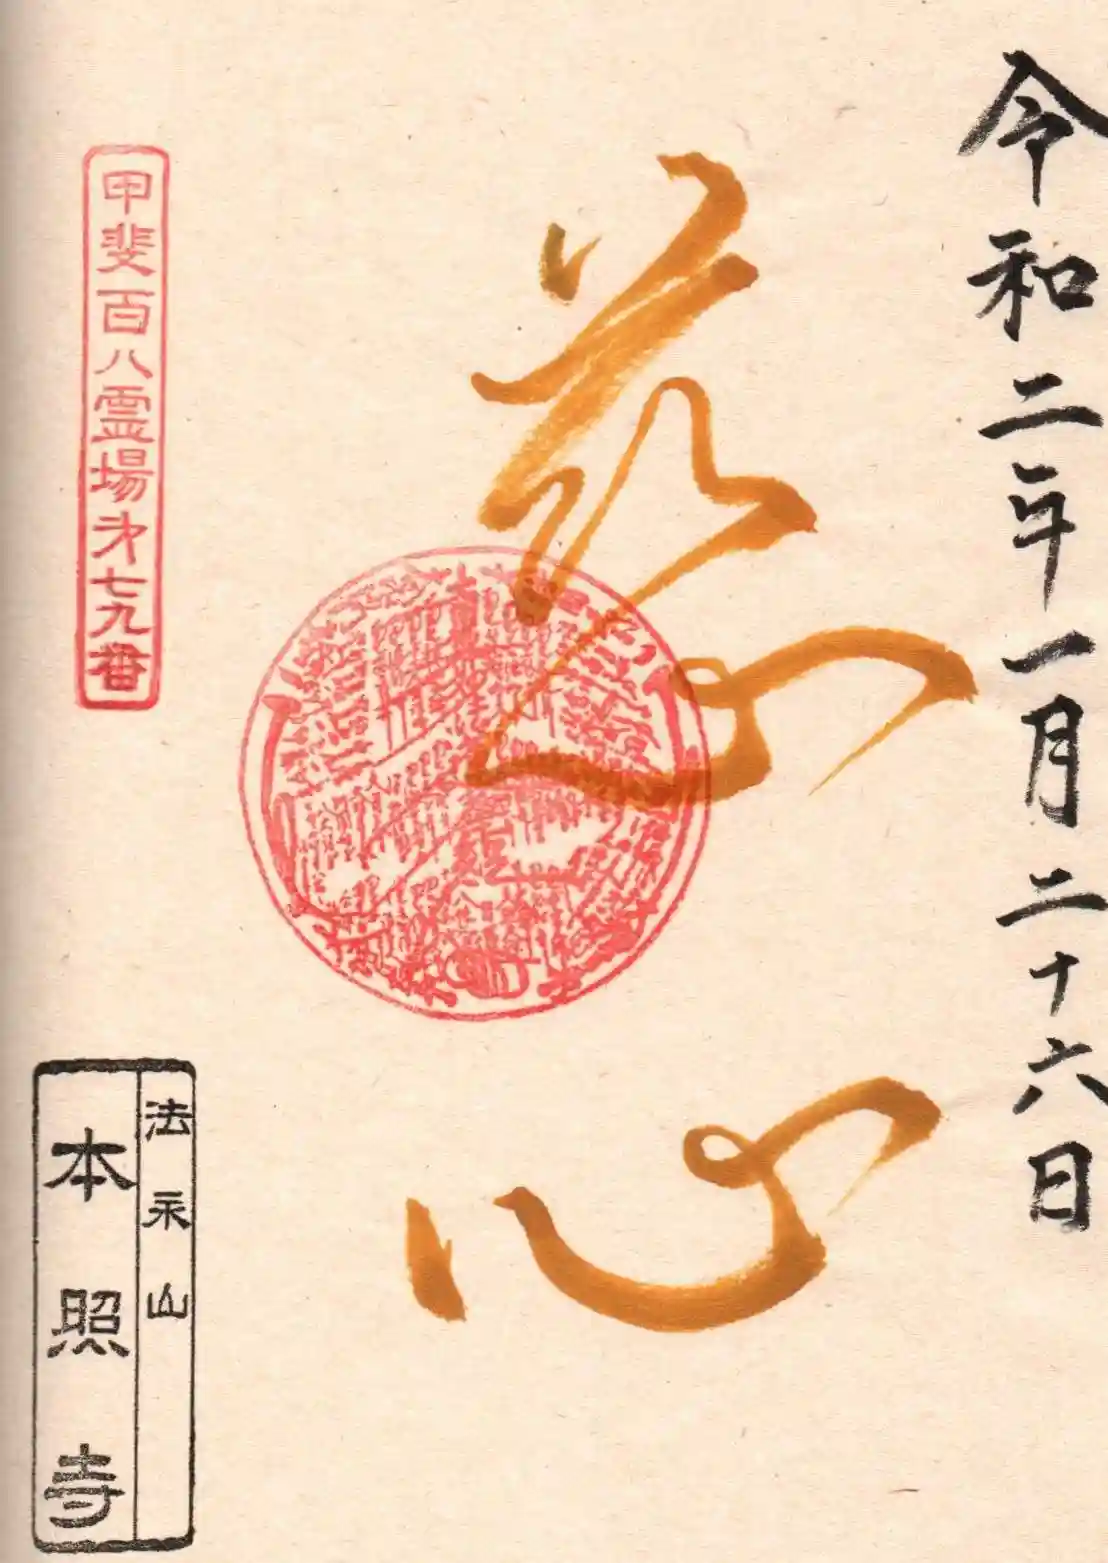 令和二年一月二十六日
慈心
法永山
本照寺
甲斐百八霊場第七九番